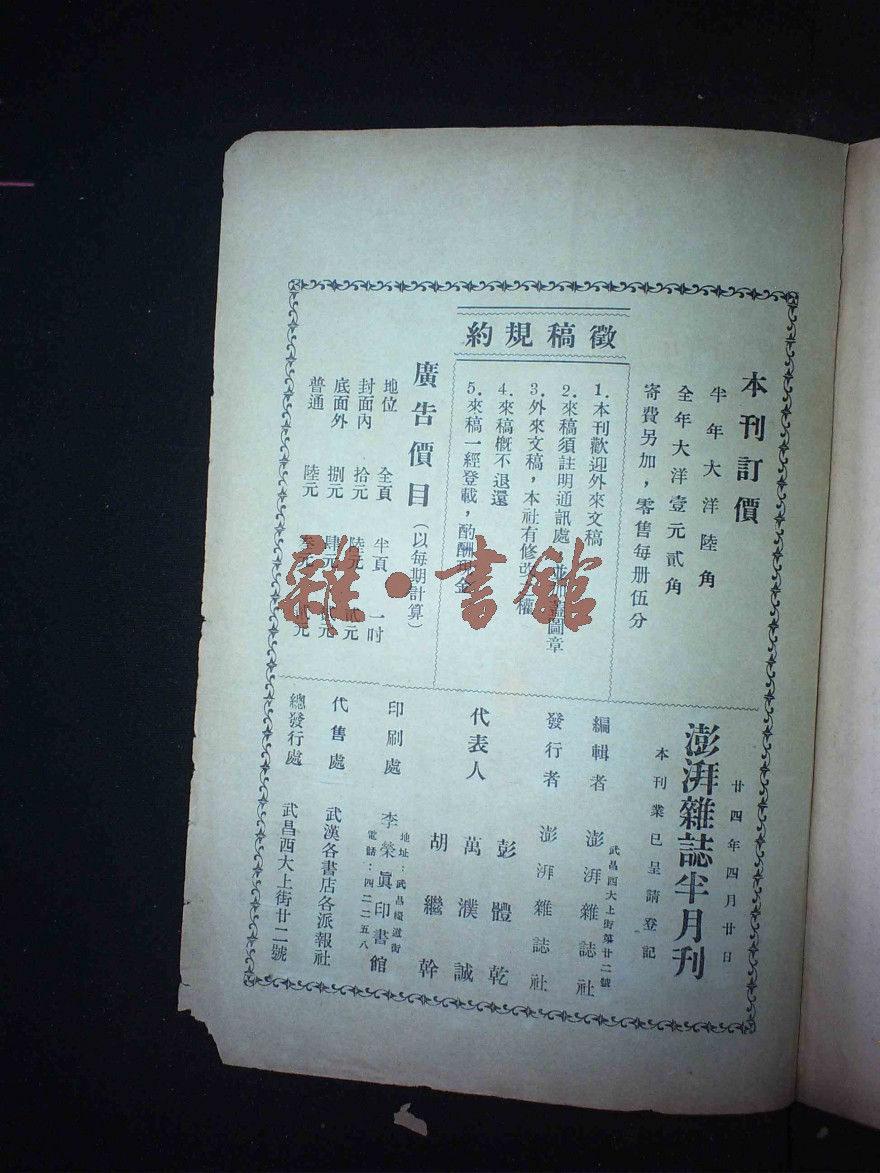 本刊訂價
半年大洋陸角
全年大洋壹元貳角
寄費另加，零售每册伍分
徵稿規約
1.本刊歡迎外來文稿
2.來稿須註明通訊處 並加蓋圖章
3.外來文稿，本社有修改 權
4.來稿概不退還
5.來稿一經登載，酌酬現金
廣告價目（以每期計算）
地位 全頁 半頁 一吋
封面內 拾元 陸元 貳元
底面外 捌元 肆元 元
普通 陸元 叁元 貳元
廿四年四月廿日
澎湃雜誌半月刊
本刊業已呈請登記
編輯者 澎湃雜誌社
武昌西大上街第廿二號
發行者 澎湃雜誌社
代表人 彭體乾
萬濮誠
胡繼幹
印刷處 李榮眞印書館
地址：武昌 道街
電話：四二二五八
代售處 武漢各書店各派報社
總發行處 武昌西大上街廿二號
雜·書館